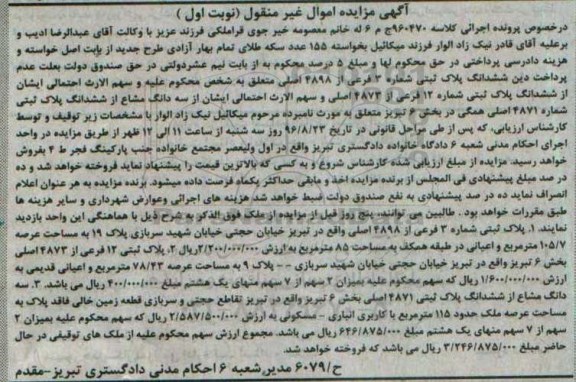 آگهی مزایده اموال غیر منقول (نوبت اول )
درخصوص پرونده اجرائی کلاسه ۹۶۰۴۷۰ج م ۶ له خانم معصومه خجوی قراملکی فرزند عزیز با وکالت آقای عبدالرضا ادیب و
برعلیه آقای قادر نیک زاد الوار فرزند میکائیل بخواسته ۱۵۵ عدد سکه طلای تمام بهار آزادی طرح جدید از بابت اصل خواسته و
هزینه دادرسی پرداختی در حق محکوم لها و مبلغ ۵ درصد محکوم به از بابت نیم عشردولتی در حق صندوق دولت بعلت عدم
پرداخت دین ششدانگ پلاک ثبتی شماره ۳ فرعی از ۴۸۹۸ اصلی متعلق به شخص محکوم علیه و سهم الارث احتمالی ایشان
از ششدانگ پلاک ثبتی شماره ۱۲ فرعی از ۴۸۷۳ اصلی و سهم الارث احتمالی ایشان از سه دانگ مشاع از ششدانگ پلاک ثبتی
شماره ۴۸۷۱ اصلی همگی در بخش ۶ تبریز متعلق به مورث نامبرده مرحوم میکائیل نیک زاد الوار با مشخصات زیر توقیف و توسط
کارشناس ارزیابی، که پس از طی مراحل قانونی در تاریخ ۹۶/۸/۲۳ روز سه شنبه از ساعت ۱۱ الی ۱۲ ظهر از طریق مزایده در واحد
اجرای احکام مدنی شعبه ۶ دادگاه خانواده دادگستری تبریز واقع در اول ولیعصر مجتمع خانواده جنب پارکینگ فجر ط ۴ بفروش
خواهد رسید. مزایده از مبلغ ارزیابی شده کارشناس شروع و به کسی که بالاترین قیمت را پیشنهاد نماید فروخته خواهد شد و ده
در صد مبلغ پیشنهادی فی المجلس از برنده مزایده اخذ و مابقی حداکثر یکماه فرصت داده میشود. برنده مزایده به هر عنوان اعلام
انصراف نماید ده در صد پیشنهادی به نفع صندوق دولت ضبط خواهد شد هزینه های اجرائی وعوارض شهرداری و سایر هزینه ها
طبق مقررات خواهد بود . طالبین می توانند، پنج روز قبل از مزایده از ملک فوق الذکر به شرح ذیل با هماهنگی این واحد بازدید
نمایند. ۱. پلاک ثبتی شماره ۳ فرعی از ۴۸۹۸ اصلی واقع در تبریز خیابان حجتی خیابان شهید سربازی پلاک ۱۹ به مساحت عرصه
۱۰۵/۷ مترمربع و اعیانی در طبقه همکف به مساحت ۸۵ مترمربع به ارزش ۲/۲۰۰/۰۰۰/۰۰۰ریال ۲. پلاک ثبتی ۱۲ فرعی از ۴۸۷۳ اصلی
بخش ۶ تبریز واقع در تبریز خیابان حجتی خیابان شهید سربازی -- پلاک ۹ به مساحت عرصه ۷۸/۴۳ مترمربع و اعیانی قدیمی به
ارزش ۱/۶۰۰/۰۰۰/۰۰۰ ریال که سهم محکوم علیه بمیزان ۲ سهم از ۷ سهم منهای یک هشتم مبلغ ۴۰۰/۰۰۰/۰۰۰ ریال می باشد. ۳. سه
دانگ مشاع از ششدانگ پلاک ثبتی ۴۸۷۱ اصلی بخش ۶ تبریز واقع در تبریز تقاطع حجتی و سربازی قطعه زمین خالی فاقد پلاک به
مساحت عرصه ملک حدود ۱۱۵ مترمربع با کاربری انباری - مسکونی به ارزش ۲/۵۸۷/۵۰۰/۰۰۰ ریال که سهم محکوم علیه بمیزان ۲
سهم از ۷ سهم منهای یک هشتم مبلغ ۶۴۶/۸۷۵/۰۰۰ ریال می باشد. مجموع ارزش سهم محکوم علیه از ملک های توقیفی در حال
حاضر مبلغ ۳/۲۴۶/۸۷۵/۰۰۰ ریال می باشد که فروخته خواهد شد.
ح/۶۰۷۹ مدیر شعبه ۶ احکام مدنی دادگستری تبریز-مقدم